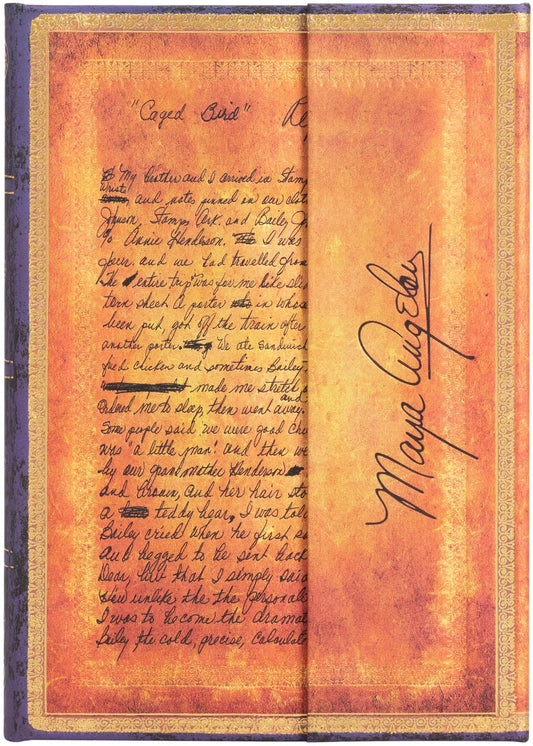 "Caged Bird"
My brother and I arrived in Stam
wrists and notes pinned on our clot
Johnson, Stamps, Ark. and Bailey J
c/o Annie Henderson. I was
four. and we had travelled from
The entire trip was for me like sle
tern sheet a porter in whose
been put, got off the train after
another porter. We ate sandwich
fied chicken and sometimes Bailey
made me stretch
and
Ordered me to sleep, then went away.
Some people said we were good ch
was 'a little man'. and then we
by our grandmother Henderson
and brown, and her hair sto
a teddy bear, I was tol
Bailey cried when he first sa
and begged to be sent back
Dear, but that I simply said
unlike the the personali
I was to become the drama
Bailey the cold, precise, calculate
Maya Angelou